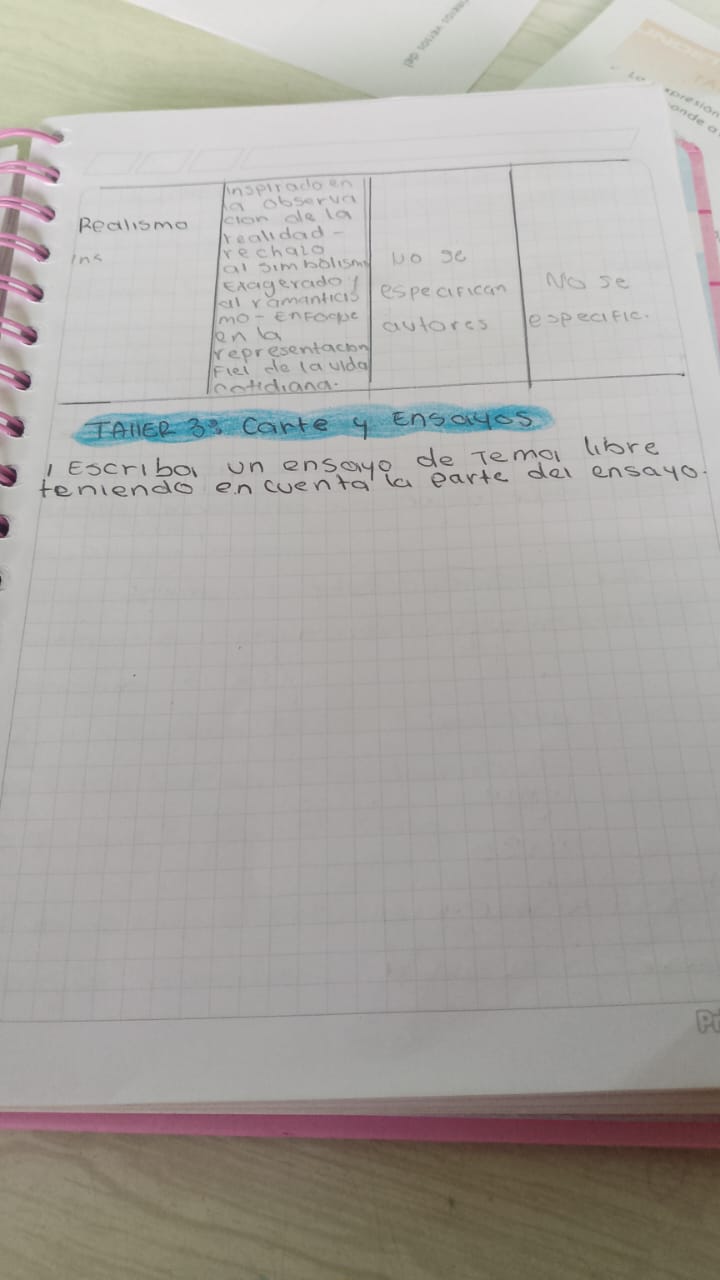 Realismo
Ins
Inspirado en
la observa
cion de la
realidad -
rechazo
al simbolismo
Exagerado y
al ramanticis
mo - EnFoque
en la
representacion
Fiel de la vida
cotidiana.
No se
especifican
autores
No se
especific.
TAllER 3: Carte y Ensayos
1 Escriba un ensayo de Tema libre
teniendo en cuenta la parte del ensayo.
La expresión